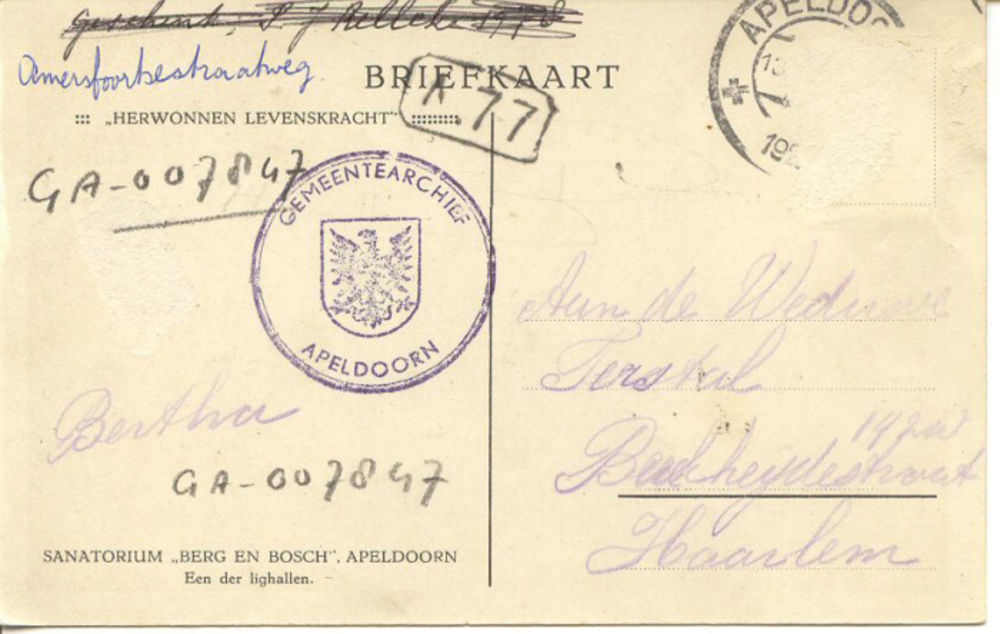 Geschenk, P J 1970
Amersfoortsestraatweg
BRIEFKAART
::: „HERWONNEN LEVENSKRACHT" :::::::::
K 77
GA-007847
GEMEENTEARCHIEF
APELDOORN
APELDOO
13
192
Aan de Weduwe
Terstal
Haarlem
Bertha
GA-007847
SANATORIUM „BERG EN BOSCH", APELDOORN
Een der lighallen.